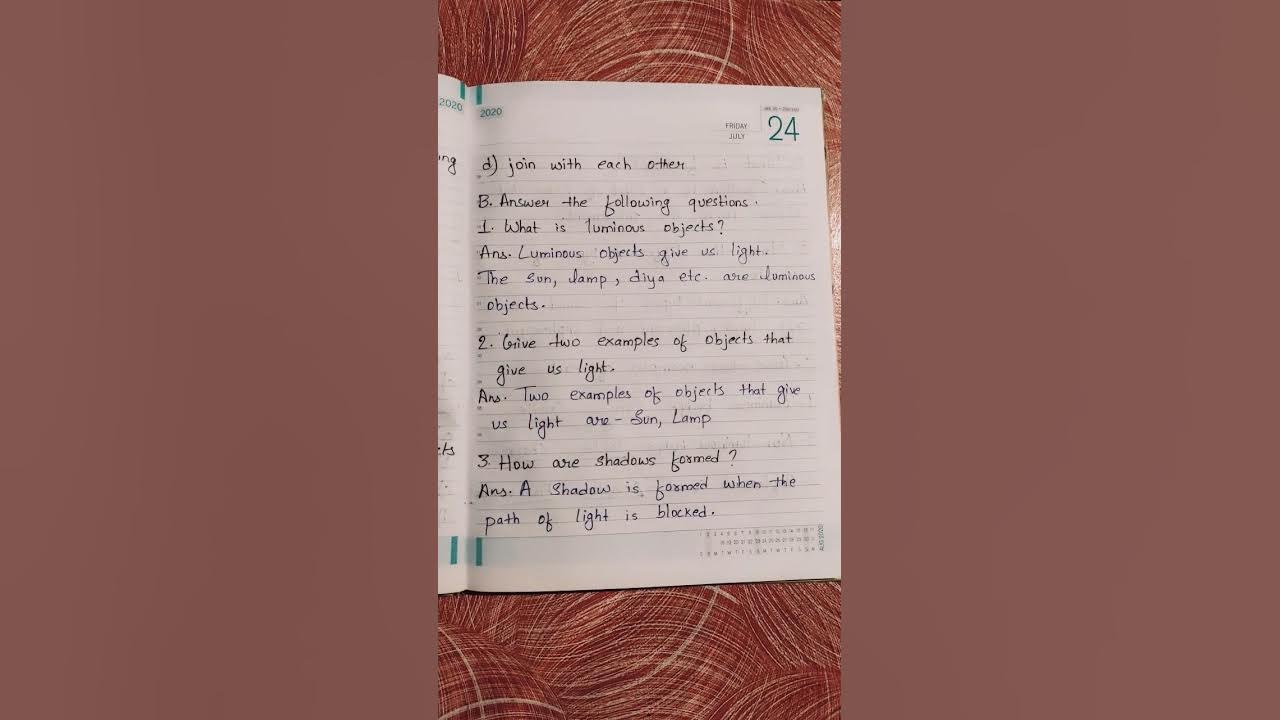 2020
ing
cts
2020
FRIDAY
JULY
24
d) join with each other
B. Answer the following questions.
1. What is luminous objects?
Ans. Luminous objects give us light.
The Sun, lamp, diya etc. are luminous
objects.
2. Give two examples of objects that
give us light.
Ans. Two examples of objects that give
us light are - Sun, Lamp
3. How are shadows formed?
Ans. A shadow is formed when the
path of light is blocked.
AUG 2020